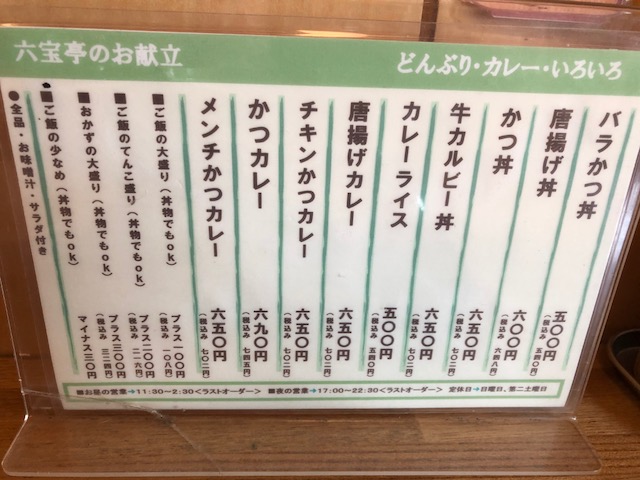 六宝亭のお献立
どんぶり・カレー・いろいろ
バラかつ丼 五〇〇円
(税込み 五四〇円)
唐揚げ丼 六〇〇円
(税込み 六四八円)
かつ丼 六五〇円
(税込み 七〇二円)
牛カルビー丼 六五〇円
(税込み 七〇二円)
カレーライス 五〇〇円
(税込み 五四〇円)
唐揚げカレー 六五〇円
(税込み 七〇二円)
チキンかつカレー 六五〇円
(税込み 七〇二円)
かつカレー 六九〇円
(税込み 七四五円)
メンチかつカレー 六五〇円
(税込み 七〇二円)
■ご飯の大盛り(丼物でもok) プラス一〇〇円
(税込み 一〇八円)
■ご飯のてんこ盛り(丼物でもok) プラス二〇〇円
(税込み 二一六円)
■おかずの大盛り(丼物でもok) プラス三〇〇円
(税込み 三二四円)
■ご飯の少なめ(丼物でもok) マイナス三〇円
●全品・お味噌汁・サラダ付き
■お昼の営業→11:30~2:30<ラストオーダー> ■夜の営業→17:00~22:30<ラストオーダー> 定休日→日曜日、第二土曜日